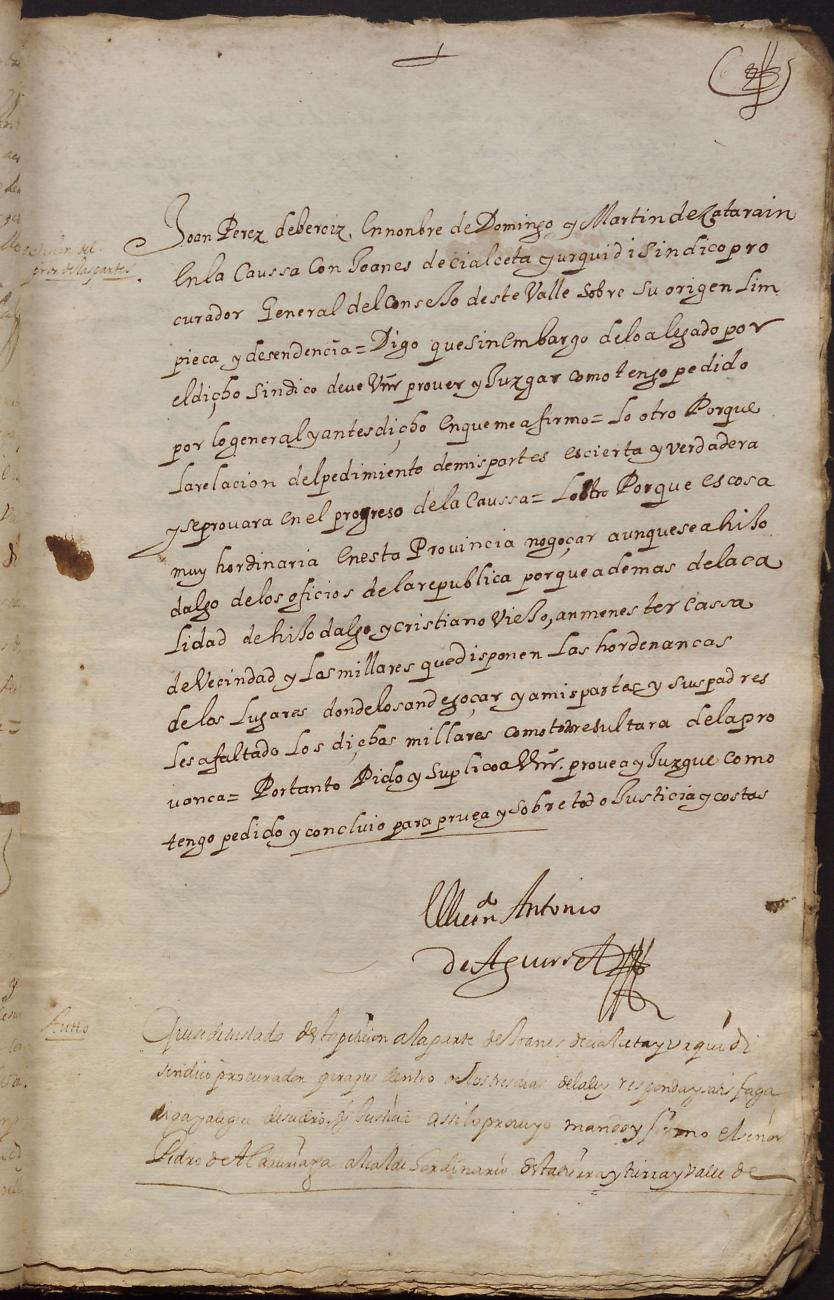 Joan Perez de beroiz. En nonbre de Domingo y Martin de Zatarain
En la Caussa Con Joanes de cialceta y urquidi Sindico pro
curador General del Conseso deste Valle Sobre Su origen Lim
pieca y desendencia = Digo que sin embargo de lo alegado por
el dicho Sindico deve Vm prover y Juzgar como tengo pedido
por lo general y antes dicho En que me afirmo = Lo otro Porque
La relacion del pedimiento de mis partes es cierta y verdadera
y se provara En el progreso de la Caussa = Lo otro Porque Es cosa
muy hordinaria En esta Provincia no goçar aunque sea hijo
dalgo de los oficios de la republica porque ademas de la ca
Lidad de hijo dalgo y cristiano Viejo, an menester Cassa
de Vecindad y Las millares que disponen Las hordenancas
de los Lugares donde los an de goçar y a mis partes y sus padres
Les a faltado Los dichos millares como todo resultara de la pro
vanca = Por tanto Pido y Suplico a Vm. provea y Juzgue como
tengo pedido y concluio para prueva y Sobre todo Justicia y costas
Antonio
de Aguirre
Autto
de la peticion a la parte de Joanes de cialceta y Urquidi
sindico procurador dentro responda
Justicia assi lo proveyo mando y firmo el señor
Pedro de alcalde hordinario desta tierra y Valle de